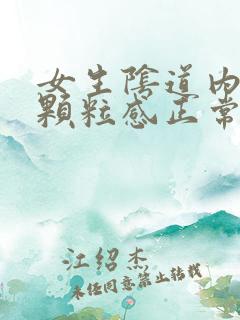 女生陰道内
顆粒感正常
江绍杰
未任同意禁止转载